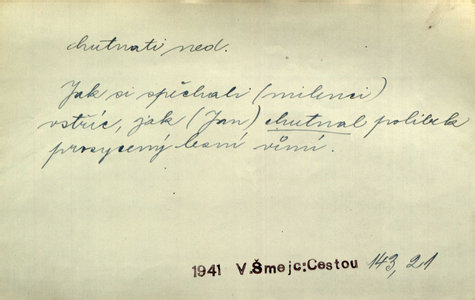 chutnati ned.
Jak si spěchali (milenci)
vstříc, jak (Jan) chutnal polibek
prosycený lesní vůní.
1941 V.Šmejc:Cestou 143,21